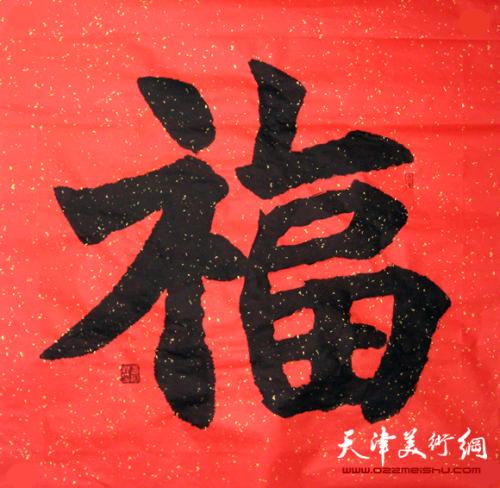 福
天津美術網
www.022meishu.com